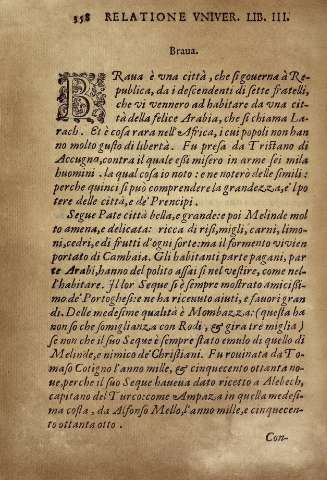 358 RELATIONE VNIVER. LIB. III.
Braua.
BRAua è vna città, che si gouerna à Re-
publica, da i descendenti di sette fratelli,
che vi vennero ad habitare da vna cit-
tà della felice Arabia, che si chiama La-
rach. Et è cosa rara nell'Affrica, i cui popoli non han
no molto gusto di libertà. Fu presa da Tristano di
Accugna, contra il quale essi misero in arme sei mila
huomini. la qual cosa io noto: e ne noterò delle simili:
perche quinci si può comprendere la grandezza, e'l po
tere delle città, e de' Prencipi.
Segue Pate città bella, e grande: e poi Melinde mol
to amena, e delicata: ricca di risi, migli, carni, limo-
ni, cedri, e di frutti d'ogni sorte: ma il formento vi vien
portato di Cambaia. Gli habitanti parte pagani, par
te Arabi, hanno del polito assai sì nel vestire, come nel-
l'habitare. Il lor Seque si è sempre mostrato amicissi-
mo de' Portoghesi: e ne hà riceuuto aiuti, e fauori gran
di. Delle medesime qualità è Mombazza: (questa ha
non so che somiglianza con Rodi, & gira tre miglia)
se non che il suo Seque è sempre stato emulo di quello di
Melinde, e nimico de' Christiani. Fu rouinata da To-
maso Cotigno l'anno mille, & cinquecento ottanta no
ue, perche il suo Seque haueua dato ricetto a Alebech,
capitano del Turco: come Ampaza in quella medesi-
ma costa, da Alfonso Mello, l'anno mille, e cinquecen-
to ottanta otto.
Con-